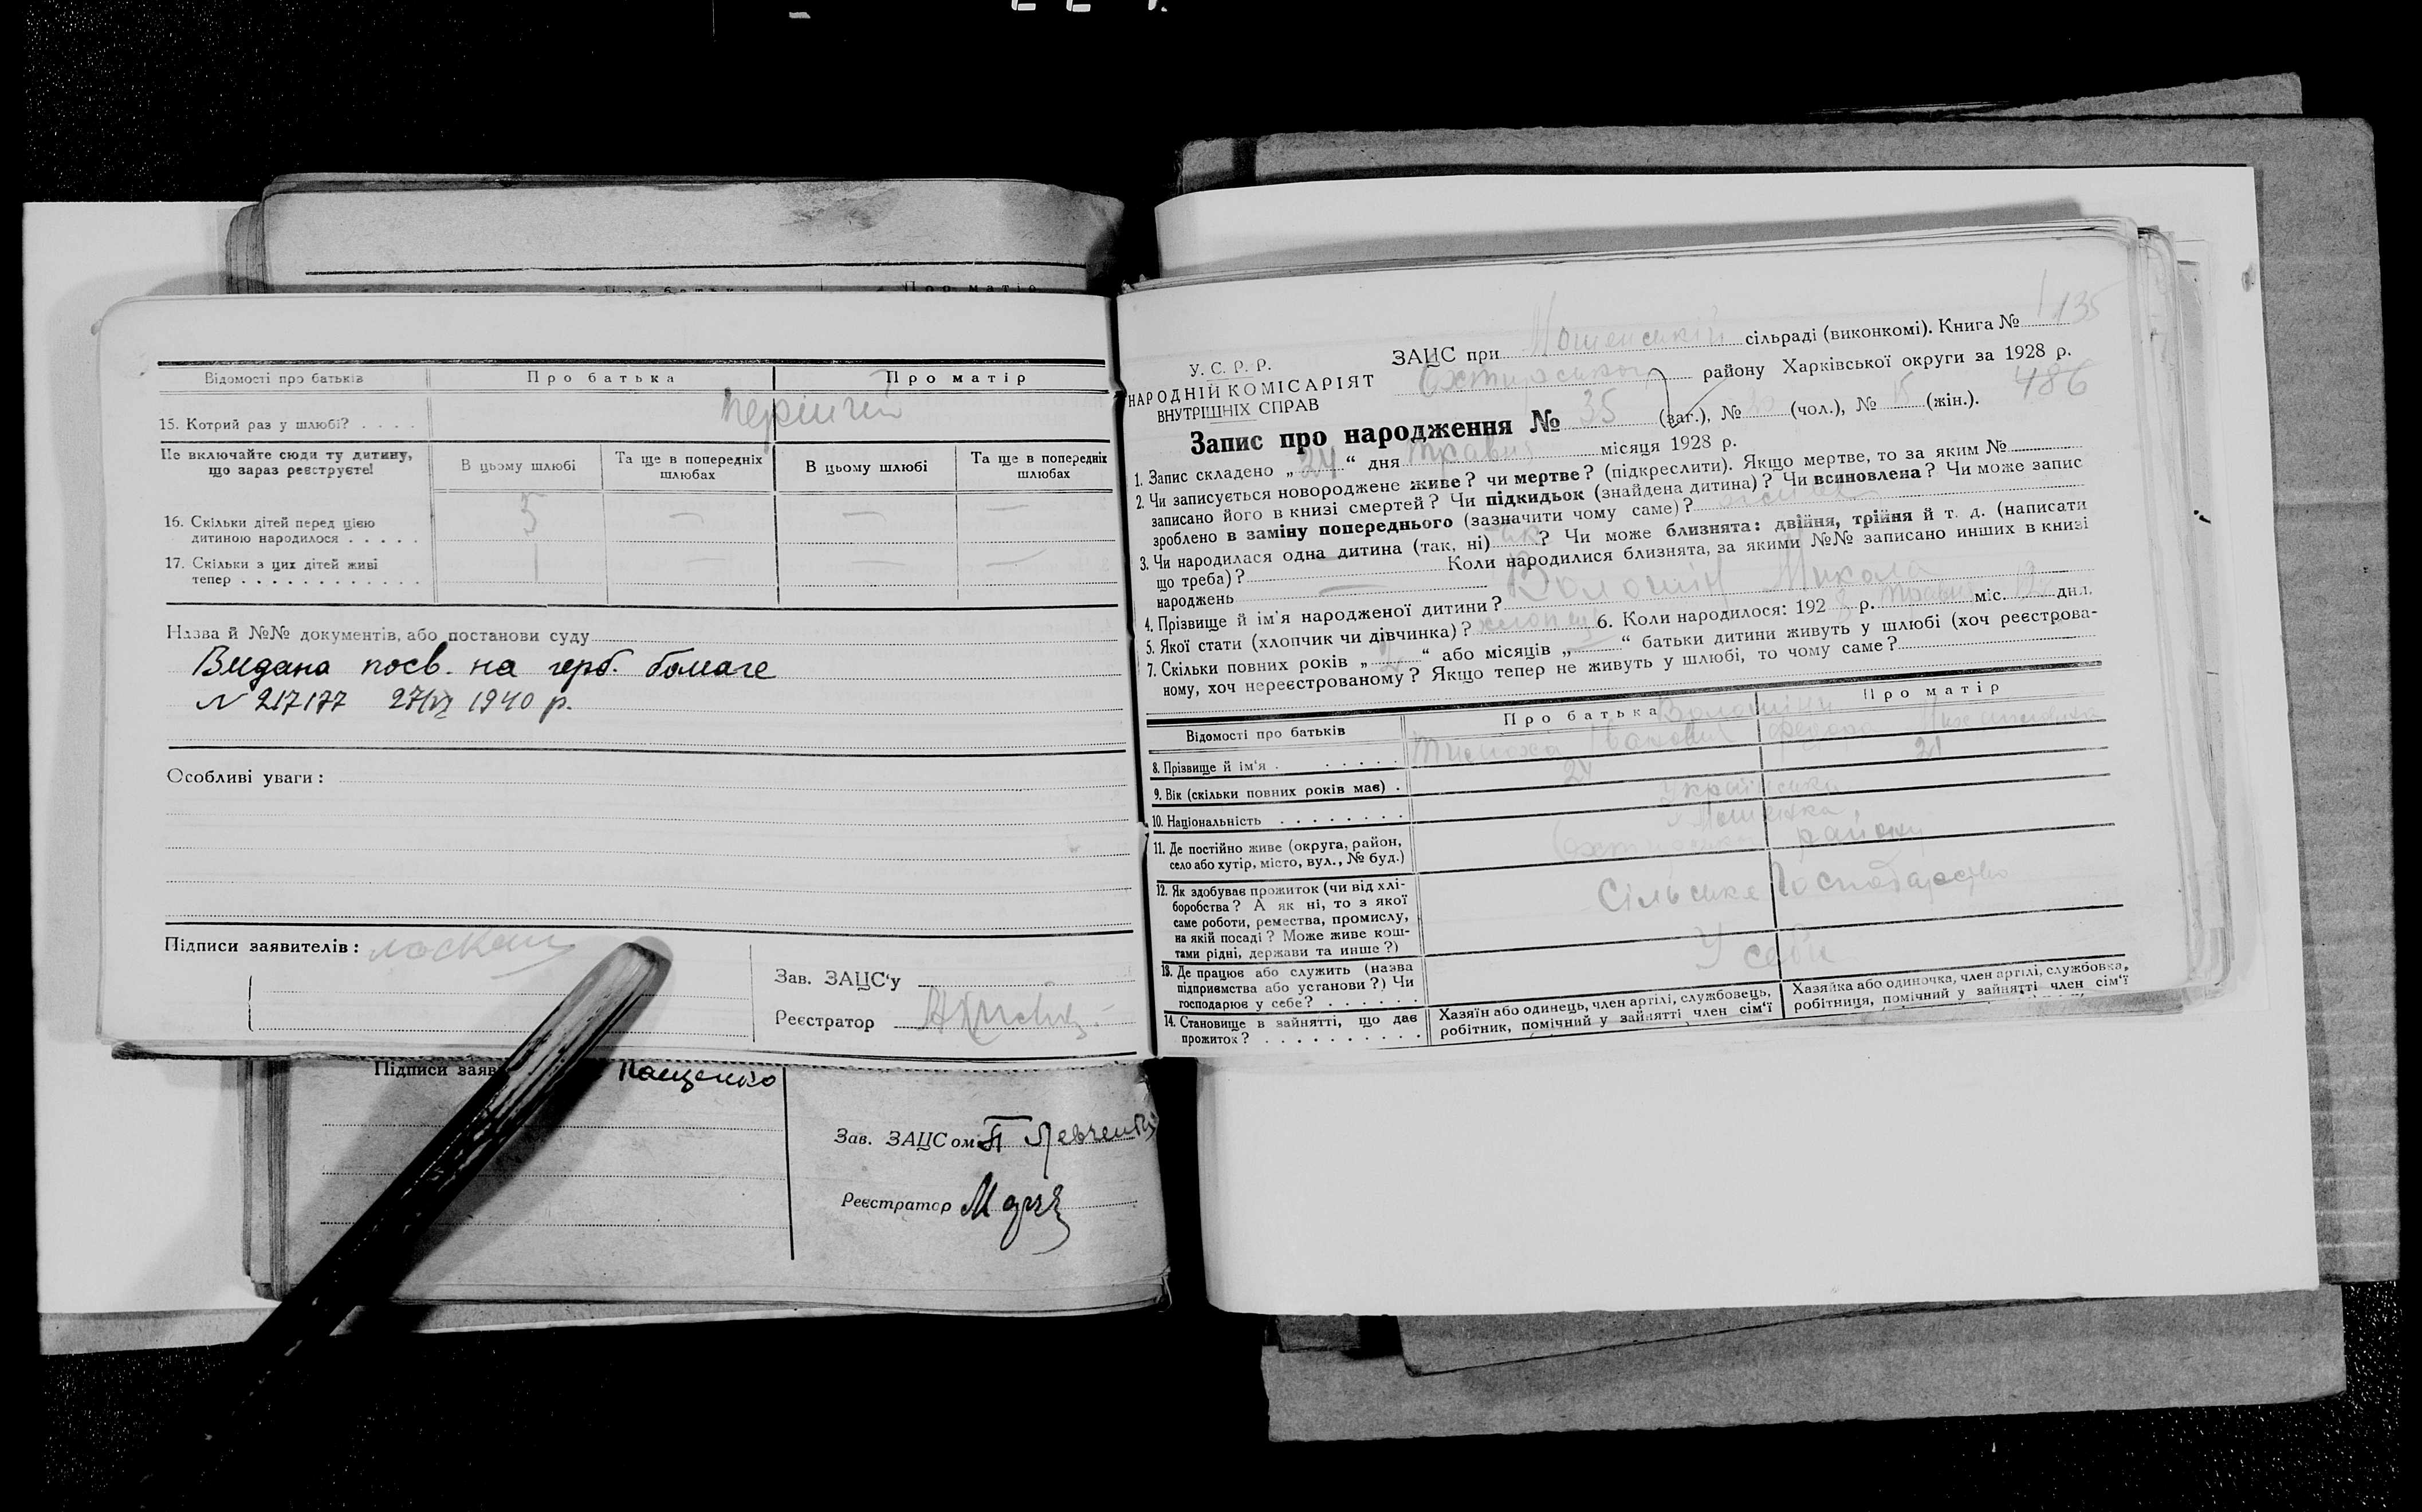 Про батька Про матір
Відомості про батьків Про батька Про матір
15. Котрий раз у шлюбі? . . . . перший
Не включайте сюди ту дитину, що зараз реєструєте!
В цьому шлюбі Та ще в попередніх шлюбах В цьому шлюбі Та ще в попередніх шлюбах
16. Скільки дітей перед цією
дитиною народилося . . . . . 5 — — —
17. Скільки з цих дітей живі
тепер . . . . . . . . . . . . 1 — — —
Назва й №№ документів, або постанови суду
Видана посв. на герб. бомаге
N 217177 27/VI 1940 р.
Особливі уваги:
Підписи заявителів:
Зав. ЗАЦС'у
Реєстратор
Підписи заяв Пащенко
Зав. ЗАЦСом П Левченко
Реєстратор
У. С. Р. Р.
НАРОДНІЙ КОМІСАРІЯТ
ВНУТРІШНІХ СПРАВ
ЗАЦС при Мошенській сільраді (виконкомі). Книга № 135
Охтирського району Харківської округи за 1928 р.
486
Запис про народження № 35 (заг.), № (чол.), № 15 (жін.).
1. Запис складено „ 24 “ дня травня місяця 1928 р.
2. Чи записується новороджене живе? чи мертве? (підкреслити). Якщо мертве, то за яким №
записано його в книзі смертей? Чи підкидьок (знайдена дитина)? Чи всиновлена? Чи може запис
зроблено в заміну попереднього (зазначити чому саме)?
3. Чи народилася одна дитина (так, ні) так? Чи може близнята: двійня, трійня й т. д. (написати
що треба)? — Коли народилися близнята, за якими №№ записано инших в книзі
народжень —
4. Прізвище й ім'я народженої дитини? Волошін Микола
5. Якої стати (хлопчик чи дівчинка)? хлопчик 6. Коли народилося: 192 8 р. травня міс. дня.
7. Скільки повних років „ “ або місяців „ “ батьки дитини живуть у шлюбі (хоч реєстрова-
ному, хоч нереєстрованому? Якщо тепер не живуть у шлюбі, то чому саме?
Відомості про батьків Про батька Про матір
Волошіни
8. Прізвище й ім'я . . . . . . Тимоха Іванович
9. Вік (скільки повних років має) . 24 21
10. Національність . . . . . . . . Українська
11. Де постійно живе (округа, район,
село або хутір, місто, вул., № буд.)
с Мошенка
Охтирського району
12. Як здобуває прожиток (чи від хлі-
боробства? А як ні, то з якої
саме роботи, ремества, промислу,
на якій посаді? Може живе кош-
тами рідні, держави та инше?)
Сільське Господарство
13. Де працює або служить (назва
підприємства або установи?) Чи
господарює у себе? . . . . . .
У себе
14. Становище в зайнятті, що дає
прожиток? . . . . . . . . . .
Хазяїн або одинець, член артілі, службовець,
робітник, помічний у зайнятті член сім'ї
Хазяйка або одиночка, член артілі, службовка,
робітниця, помічний у зайнятті член сім'ї